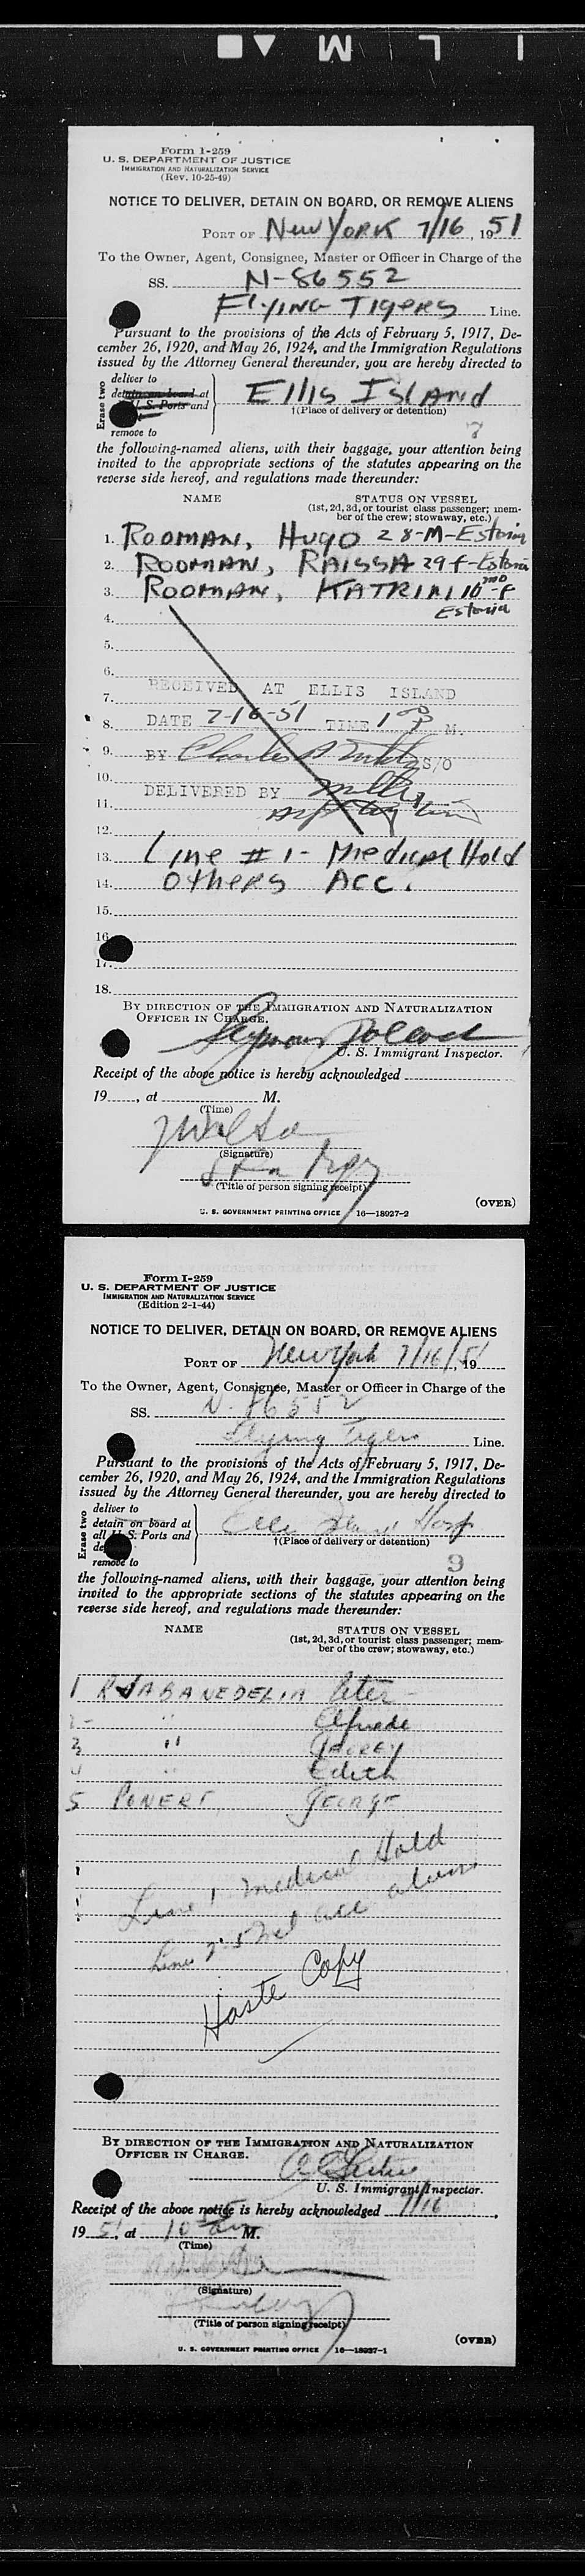 I L M
Form I-259
U. S. DEPARTMENT OF JUSTICE
IMMIGRATION AND NATURALIZATION SERVICE
(Rev. 10-25-49)
NOTICE TO DELIVER, DETAIN ON BOARD, OR REMOVE ALIENS
PORT OF New York 7/16, 1951
To the Owner, Agent, Consignee, Master or Officer in Charge of the
SS. N-86552
Flying Tigers Line.
Pursuant to the provisions of the Acts of February 5, 1917, De-
cember 26, 1920, and May 26, 1924, and the Immigration Regulations
issued by the Attorney General thereunder, you are hereby directed to
Erase two
deliver to
detain on board at
U. S. Ports and
remove to
Ellis Island
†(Place of delivery or detention)
7
the following-named aliens, with their baggage, your attention being
invited to the appropriate sections of the statutes appearing on the
reverse side hereof, and regulations made thereunder:
NAME STATUS ON VESSEL
(1st, 2d, 3d, or tourist class passenger; mem-
ber of the crew; stowaway, etc.)
1. ROOMAN, Hugo 28-M-Estonia
2. ROOMAN, RAISSA 29 F-Estonia
3. ROOMAN, KATRIN 10 mo-F
Estonia
4.
5.
6.
RECEIVED AT ELLIS ISLAND
7.
8. DATE 7-16-51 TIME 1 00 P M.
9. BY Charles A S/O
10.
DELIVERED BY
11.
12.
13. Line #1- Medical Hold
14. others Acc.
15.
16.
17.
18.
BY DIRECTION OF THE IMMIGRATION AND NATURALIZATION
OFFICER IN CHARGE.
Seymour Pollock
U. S. Immigrant Inspector.
Receipt of the above notice is hereby acknowledged
19, at M.
(Time)
(Signature)
(Title of person signing receipt)
(OVER)
U. S. GOVERNMENT PRINTING OFFICE 16—18927-2
Form I-259
U. S. DEPARTMENT OF JUSTICE
IMMIGRATION AND NATURALIZATION SERVICE
(Edition 2-1-44)
NOTICE TO DELIVER, DETAIN ON BOARD, OR REMOVE ALIENS
PORT OF New York 7/16/51, 19
To the Owner, Agent, Consignee, Master or Officer in Charge of the
SS. N-86552
Flying Tigers Line.
Pursuant to the provisions of the Acts of February 5, 1917, De-
cember 26, 1920, and May 26, 1924, and the Immigration Regulations
issued by the Attorney General thereunder, you are hereby directed to
Erase two
deliver to
detain on board at
all U. S. Ports and
remove to
Ellis Island Hosp
†(Place of delivery or detention)
9
the following-named aliens, with their baggage, your attention being
invited to the appropriate sections of the statutes appearing on the
reverse side hereof, and regulations made thereunder:
NAME STATUS ON VESSEL
(1st, 2d, 3d, or tourist class passenger; mem-
ber of the crew; stowaway, etc.)
1 Peter
2 - " Alfrede
3 "
4 " Edith
5 PONERT GEORGE
Line 1 medical Hold
Line 2-5 acc alien
Haste Copy
BY DIRECTION OF THE IMMIGRATION AND NATURALIZATION
OFFICER IN CHARGE.
U. S. Immigrant Inspector.
Receipt of the above notice is hereby acknowledged 7/16,
19 51, at 10 M.
(Time)
(Signature)
(Title of person signing receipt)
(OVER)
U. S. GOVERNMENT PRINTING OFFICE 16—18927-1